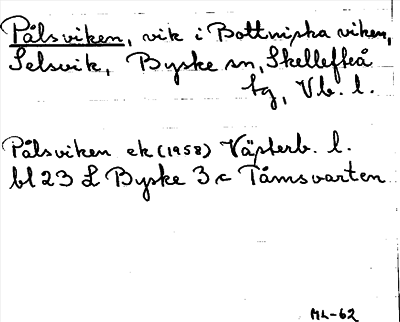 Pålsviken, vik i Bottniska viken,
Selsvik, Byske sn, Skellefteå
tg, Vb. l.
Pålsviken ek (1958) Västerb. l.
bl 23 L Byske 3 c Tåmsvarten
ML-62